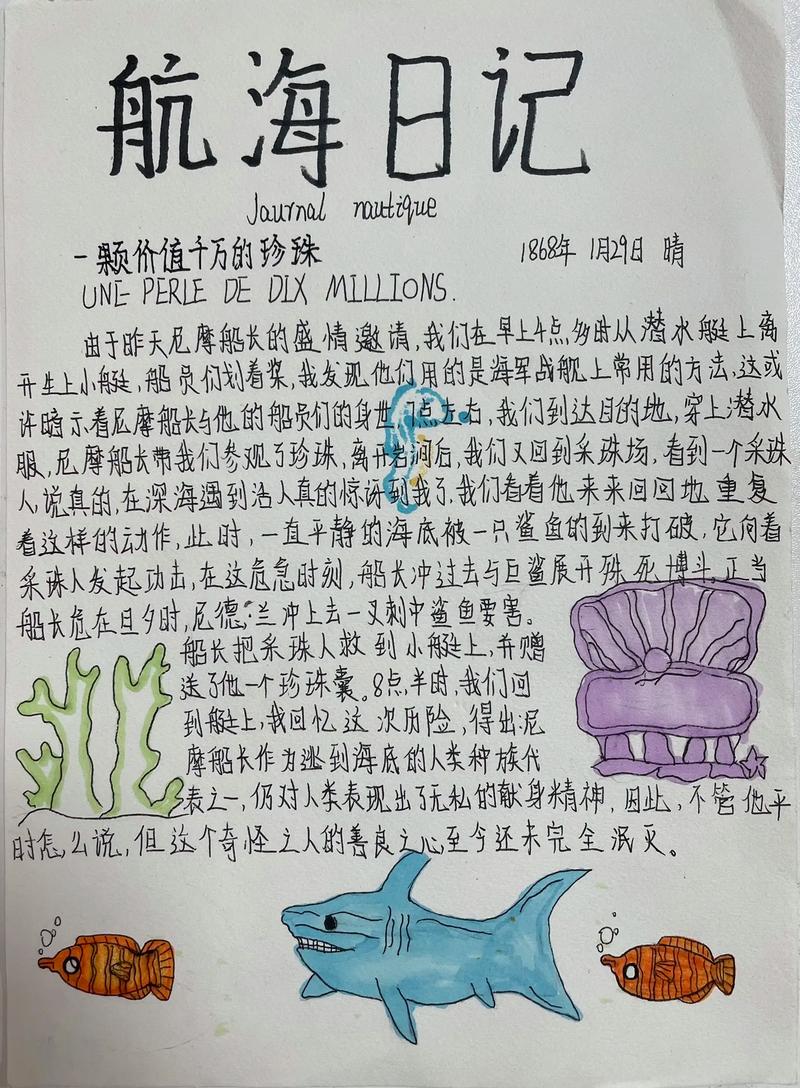 航海日记
Journal nautique
一颗价值千万的珍珠 1868年 1月29日 晴
UNE PERLE DE DIX MILLIONS.
由于昨天尼摩船长的盛情邀请,我们在早上4点多时从潜水艇上离
开坐上小艇,船员们划着桨,我发现他们用的是海军战舰上常用的方法,这或
许暗示着尼摩船长与他的船员们的身世 点左右,我们到达目的地,穿上潜水
服,尼摩船长带我们参观了珍珠,离开岩洞后,我们又回到采珠场,看到一个采珠
人,说真的,在深海遇到活人真的惊讶到我了,我们看着他来来回回地重复
着这样的动作,此时,一直平静的海底被一只鲨鱼的到来打破,它向着
采珠人发起功击,在这危急时刻,船长冲过去与巨鲨展开殊死博斗,正当
船长危在旦夕时,尼德·兰冲上去一叉刺中鲨鱼要害。
船长把采珠人救到小艇上,并赠
送了他一个珍珠囊。8点半时,我们回
到艇上,我回忆这次历险,得出泥
摩船长作为逃到海底的人类种族代
表之一,仍对人类表现出了无私的献身精神,因此,不管他平
时怎么说,但这个奇怪之人的善良之心至今还未完全泯灭。